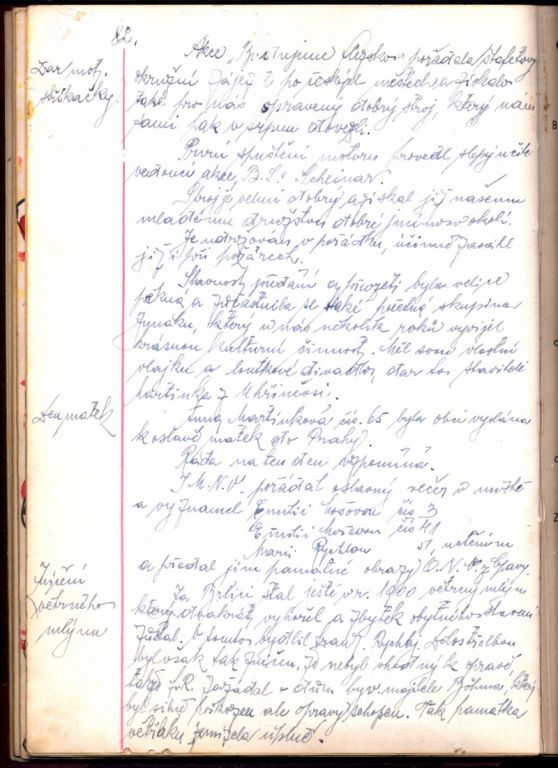 82.
Dar mot.
stříkačky.
Akce „Budujeme Slezsko" pořádala štafetový
okružní zájezd po českých městech a získala
také pro nás opravený dobrý stroj, který nám
sami pak v srpnu dovezli.
První spuštění motoru provedl slepý učitel
vedoucí akce B. S. Scheinar.
Stroj je velmi dobrý a získal již našemu
mladému družstvu dobré jméno v okolí.
Je udržován v pořádku, účinně zasáhl
již při požárech.
Slavnost předání a převzetí byla velice
pěkná a zúčastnila se také početná skupina
Junáků, který u nás několik roků vyvíjel
krásnou kulturní činnost. Měl svou vlastní
vlajku a loutkové divadlo, dar stavitele
Martínka z Uhříněvsi.
Den matek
Anna Martínková čís. 65 byla obcí vyslána
k oslavě matek do Prahy.
Ráda na ten den vzpomíná.
M.N.V. pořádal oslavný večer v místě
a vyznamenal Emilii čís 3
Emilii čís 41
Marii 51, uměním
a předal jim památné obrazy O.N.V. z Opavy.
Zničení
větrného
mlýnu
Za stál ještě v r. 1900 větrný mlýn
který dvakrát vyhořel a zbytek obytného stavení
zůstal. V tomto bydlil Rychlý. Dělostřelbou
byl však tak zničen, že nebyl vhodný k opravě,
také zažádal o dům býv. majitele Böhma, který
byl silně poškozen ale opravy schopen. Tak památka
větřáku zmizela úplně.